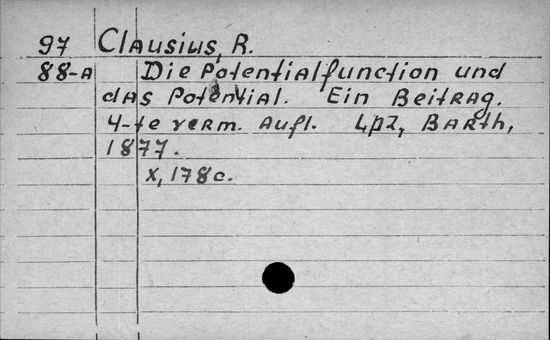 97 Clausius, R.
88-A Die Potentialfunction und
das Potential. Ein Beitrag.
4-te verm. Aufl. Lpz, Barth,
1877.
X, 178 c.